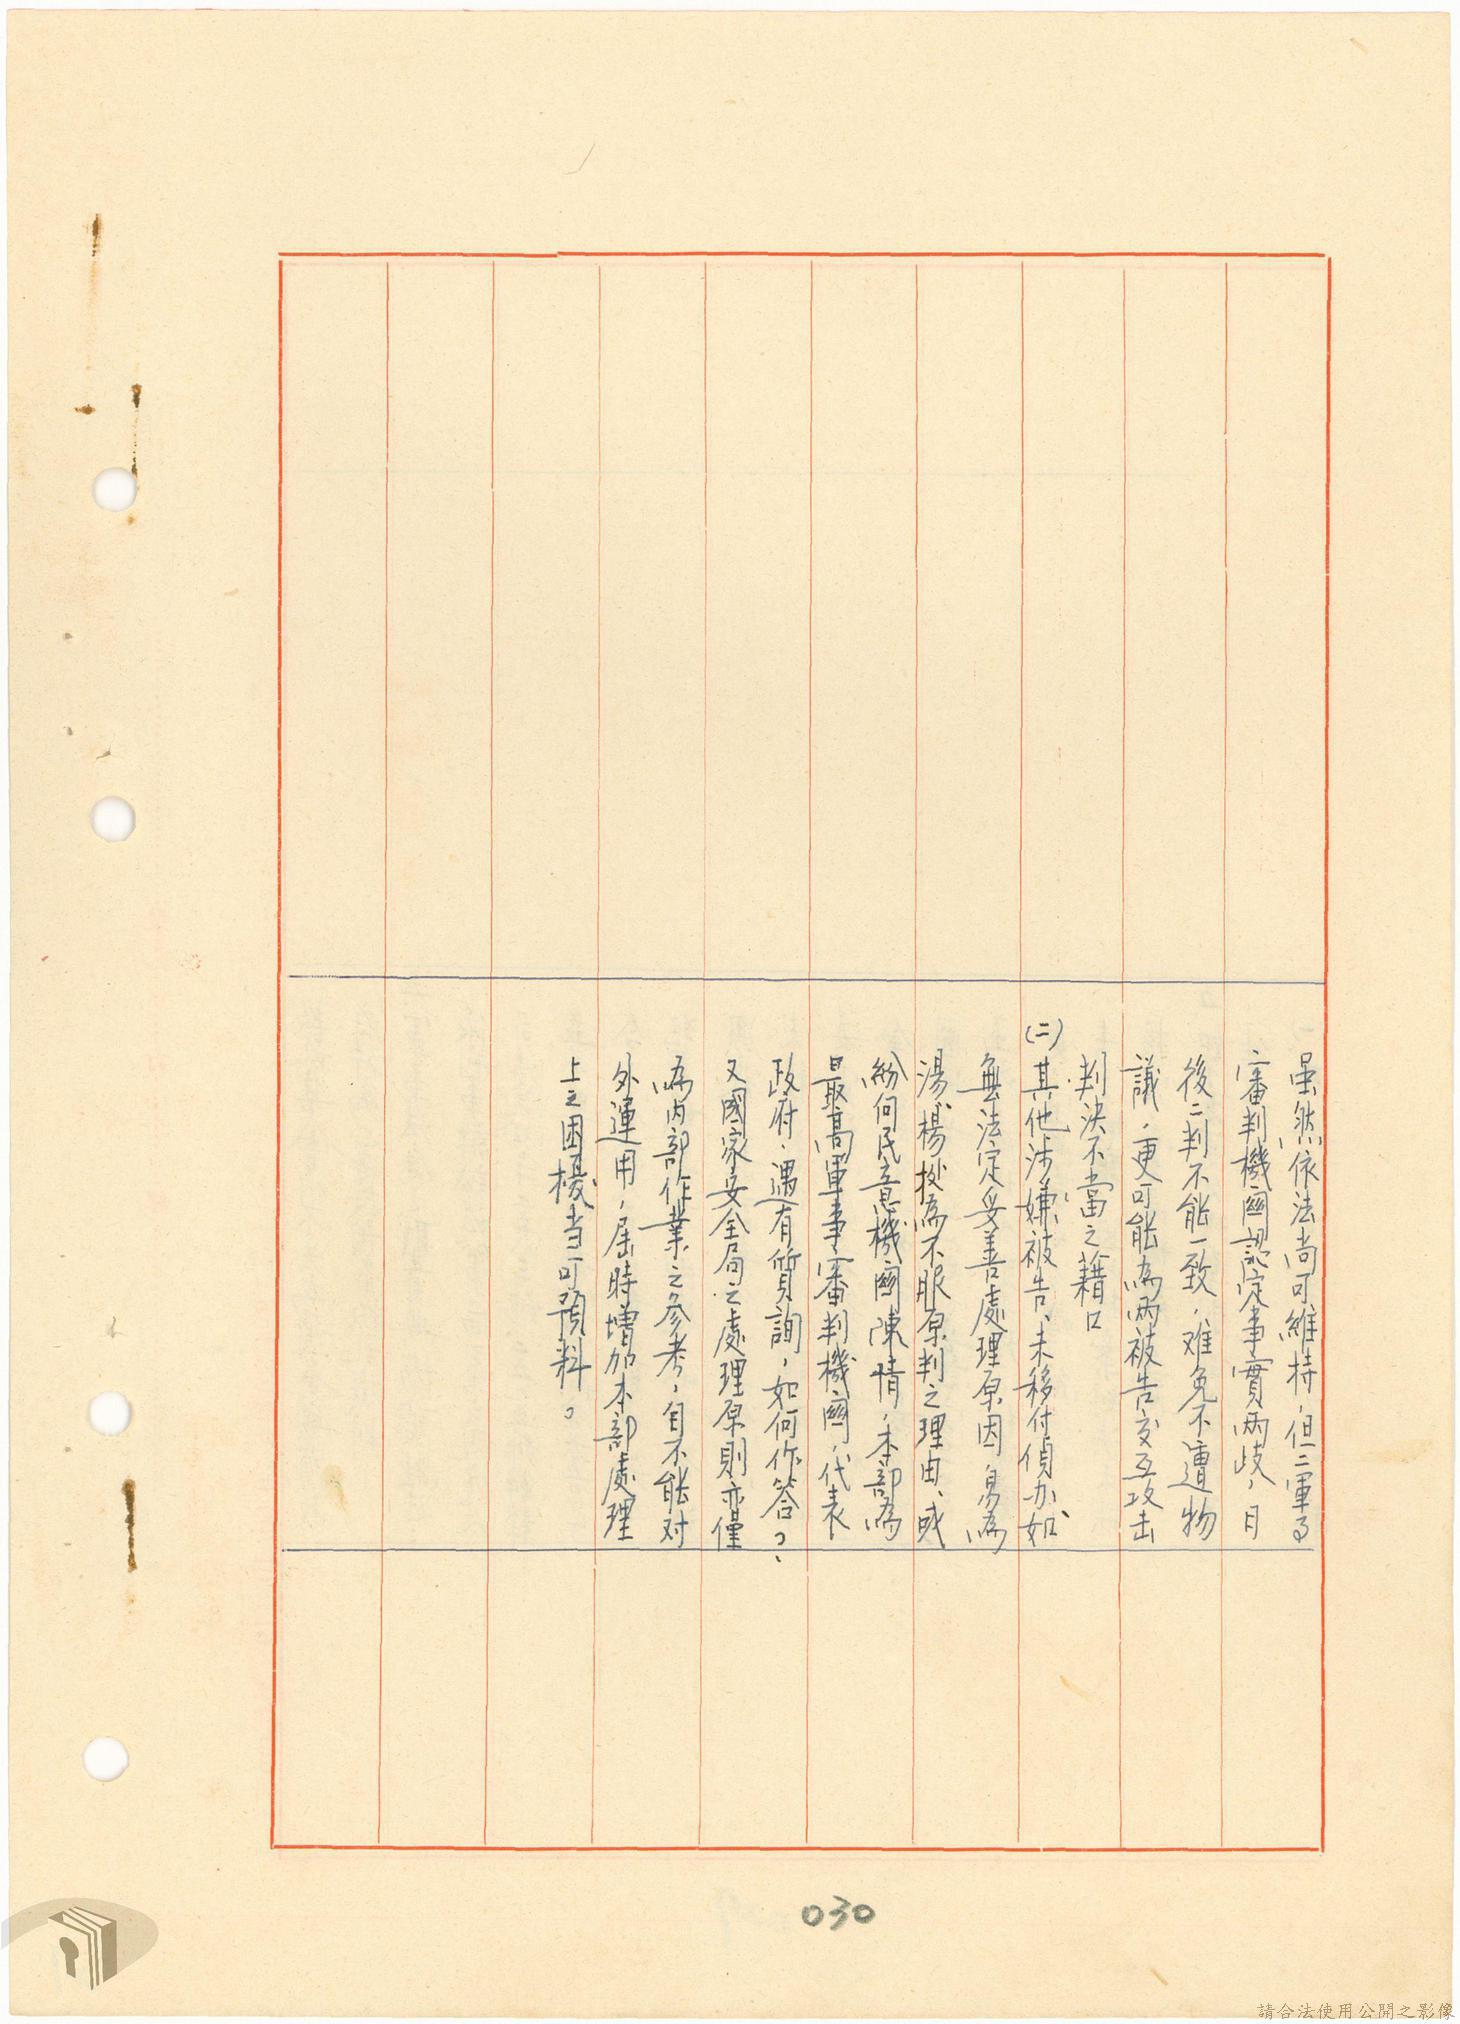 虽然依法尚可維持，但二軍事
審判機関認定事實兩歧，日
後二判不能一致，难免不遭物
議，更可能為兩被告交互攻击
判決不當之藉口
(二)其他涉嫌被告、未移付偵办如
無法定妥善處理原因，易為
湯、楊 為不服原判之理由、或
紛向民意機関陳情，本部為
最高軍事審判機関，代表
政府，遇有質詢，如何作答？
又國家安全局之處理原則亦僅
為内部作業之參考，自不能对
外運用，屆時增加本部處理
上之困擾当可預料。
030
請合法使用公開之影像